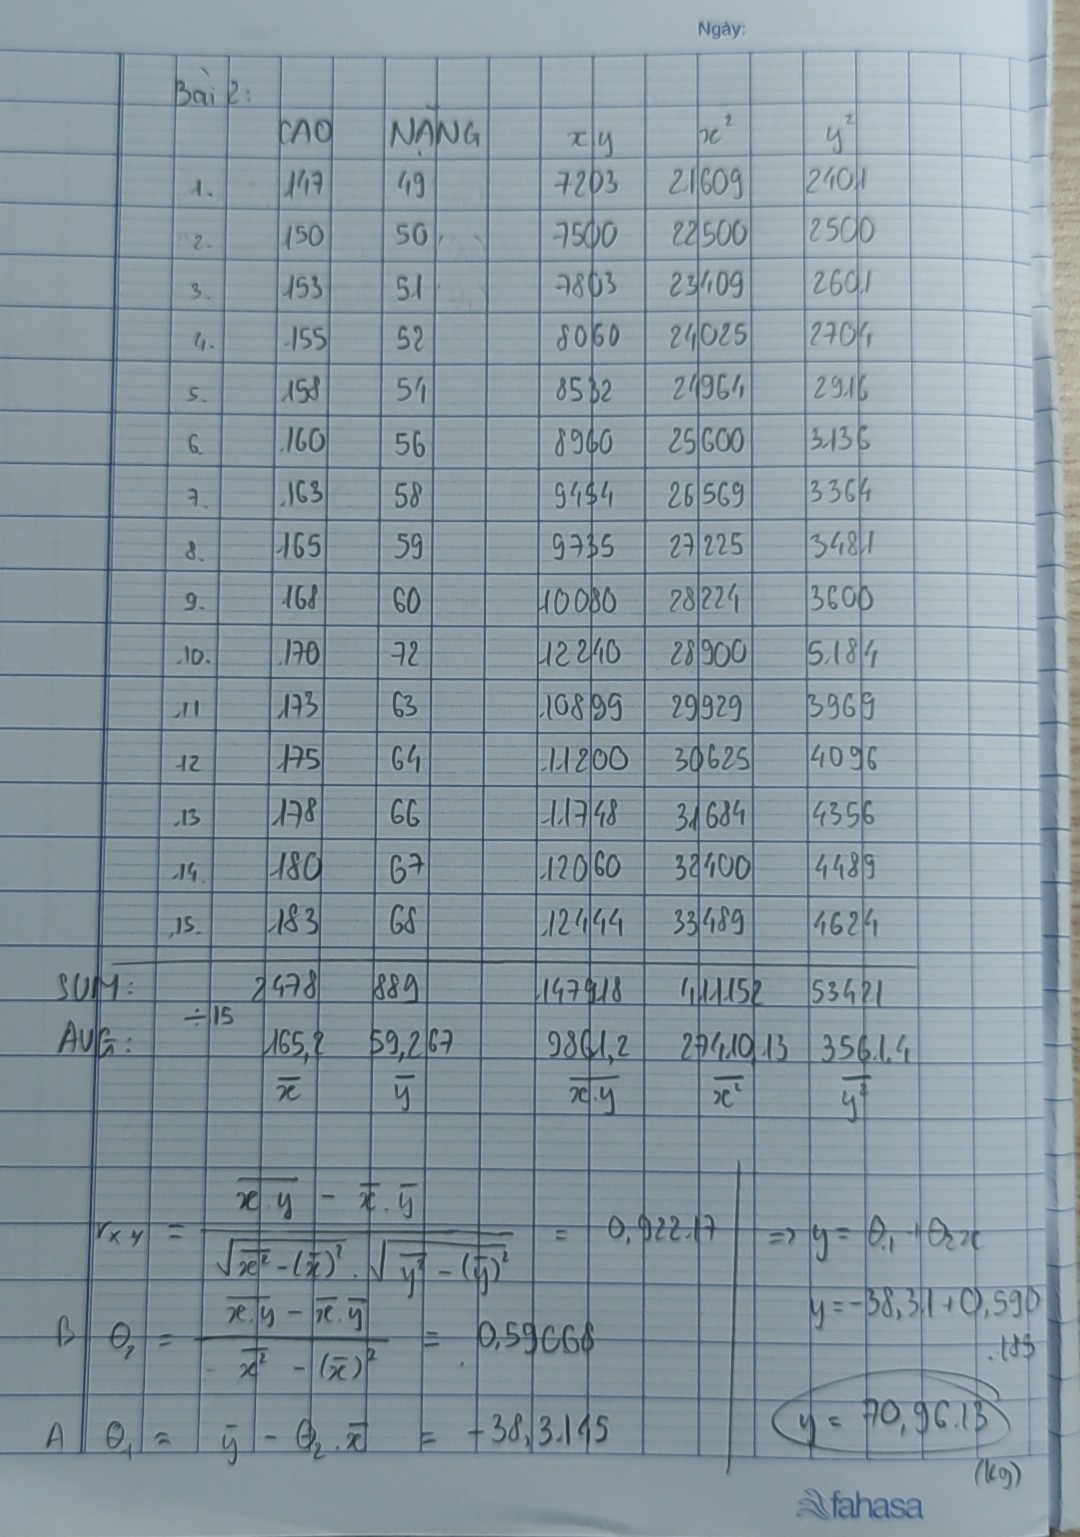 Ngày:
Bài 2:
CAO NẶNG x.y x² y²
1. 147 49 7203 21609 2401
2. 150 50 7500 22500 2500
3. 153 51 7803 23409 2601
4. 155 52 8060 24025 2704
5. 158 54 8532 24964 2916
6. 160 56 8960 25600 3136
7. 163 58 9454 26569 3364
8. 165 59 9735 27225 3481
9. 168 60 10080 28224 3600
10. 170 72 12240 28900 5184
11 173 63 10899 29929 3969
12 175 64 11200 30625 4096
13 178 66 11748 31684 4356
14. 180 67 12060 32400 4489
15. 183 68 12444 33489 4624
SUM: 2478 889 147918 411152 53421
÷ 15
AVG: 165,2 59,267 9861,2 27410,13 3561,4
x̅ y̅ x̅.̅y̅ x̅²̅ y̅²̅
rxy = (x̅.̅y̅ - x̅.y̅) / (√(x̅²̅ - (x̅)²) . √(y̅²̅ - (y̅)²)) = 0,92217
B θ₂ = (x̅.̅y̅ - x̅.y̅) / (x̅²̅ - (x̅)²) = 0,59068
A θ₁ = y̅ - θ₂.x̅ = -38,3145
=> y = θ₁ + θ₂x
y = -38,31 + 0,590
.185
y = 70,9613
(kg)
fahasa